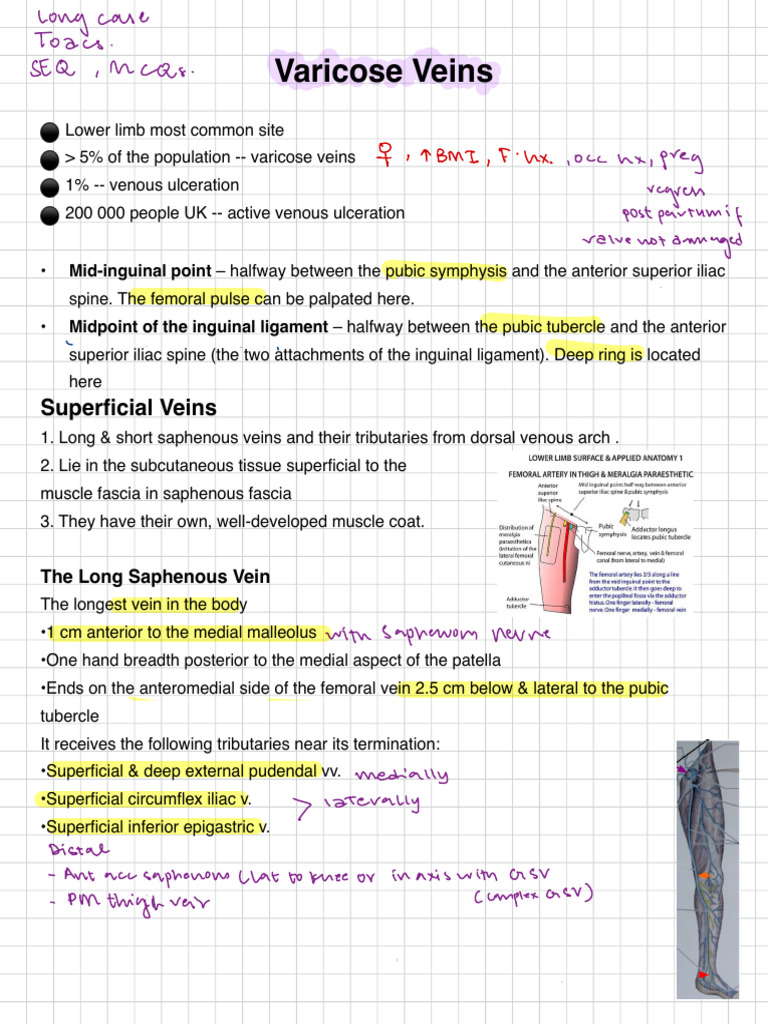 Long case
Toacs.
SEQ, MCQs.
Varicose Veins
Lower limb most common site
> 5% of the population -- varicose veins ♀, ↑BMI, F. hx., occ hx, preg
1% -- venous ulceration
regress
200 000 people UK -- active venous ulceration
post partum if
valve not damaged
• Mid-inguinal point – halfway between the pubic symphysis and the anterior superior iliac
spine. The femoral pulse can be palpated here.
• Midpoint of the inguinal ligament – halfway between the pubic tubercle and the anterior
superior iliac spine (the two attachments of the inguinal ligament). Deep ring is located
here
Superficial Veins
1. Long & short saphenous veins and their tributaries from dorsal venous arch .
2. Lie in the subcutaneous tissue superficial to the
muscle fascia in saphenous fascia
3. They have their own, well-developed muscle coat.
LOWER LIMB SURFACE & APPLIED ANATOMY 1
FEMORAL ARTERY IN THIGH & MERALGIA PARAESTHETIC
Anterior
superior
iliac spine
Mid inguinal point: half way between anterior
superior iliac spine & pubic symphysis
Distribution of
meralgia
paraesthetica
(irritation of the
lateral femoral
cutaneous n)
Pubic
symphysis
Adductor longus
locates pubic tubercle
Femoral nerve, artery, vein & femoral
canal (from lateral to medial)
The femoral artery lies 2/3 along a line
from the mid inguinal point to the
adductor tubercle. It then goes deep to
enter the popliteal fossa via the adductor
hiatus. One finger laterally - femoral
nerve. One finger medially - femoral vein
Adductor
tubercle
The Long Saphenous Vein
The longest vein in the body
•1 cm anterior to the medial malleolus with saphenous nerve
•One hand breadth posterior to the medial aspect of the patella
•Ends on the anteromedial side of the femoral vein 2.5 cm below & lateral to the pubic
tubercle
It receives the following tributaries near its termination:
•Superficial & deep external pudendal vv. medially
•Superficial circumflex iliac v. > laterally
•Superficial inferior epigastric v.
Distal
- Ant acc saphenous (lat to knee or in axis with GSV
(complex GSV)
- PM thigh vein